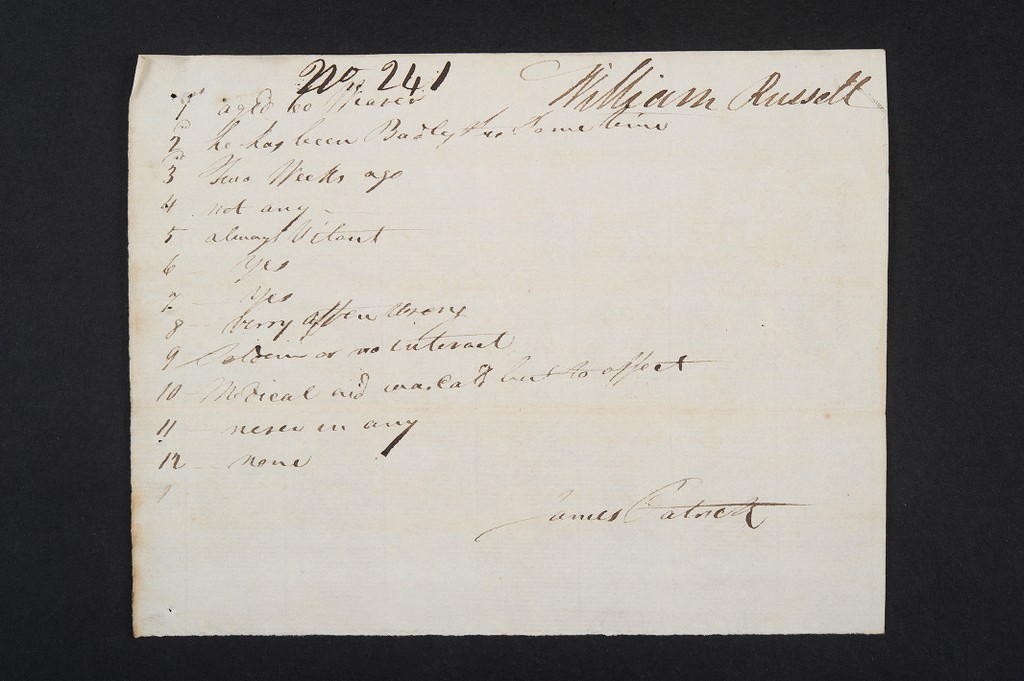 No. 241
William Russell
1st aged 60 Years
2d he has been Badly this Some time
3d Two Weeks ago
4 not any
5 always Vilant
6 Yes
7 Yes
8 verry often
9 Seldom or no interael
10 Medical aid was cald but to effect
11 never in any
12 none
James Patrick